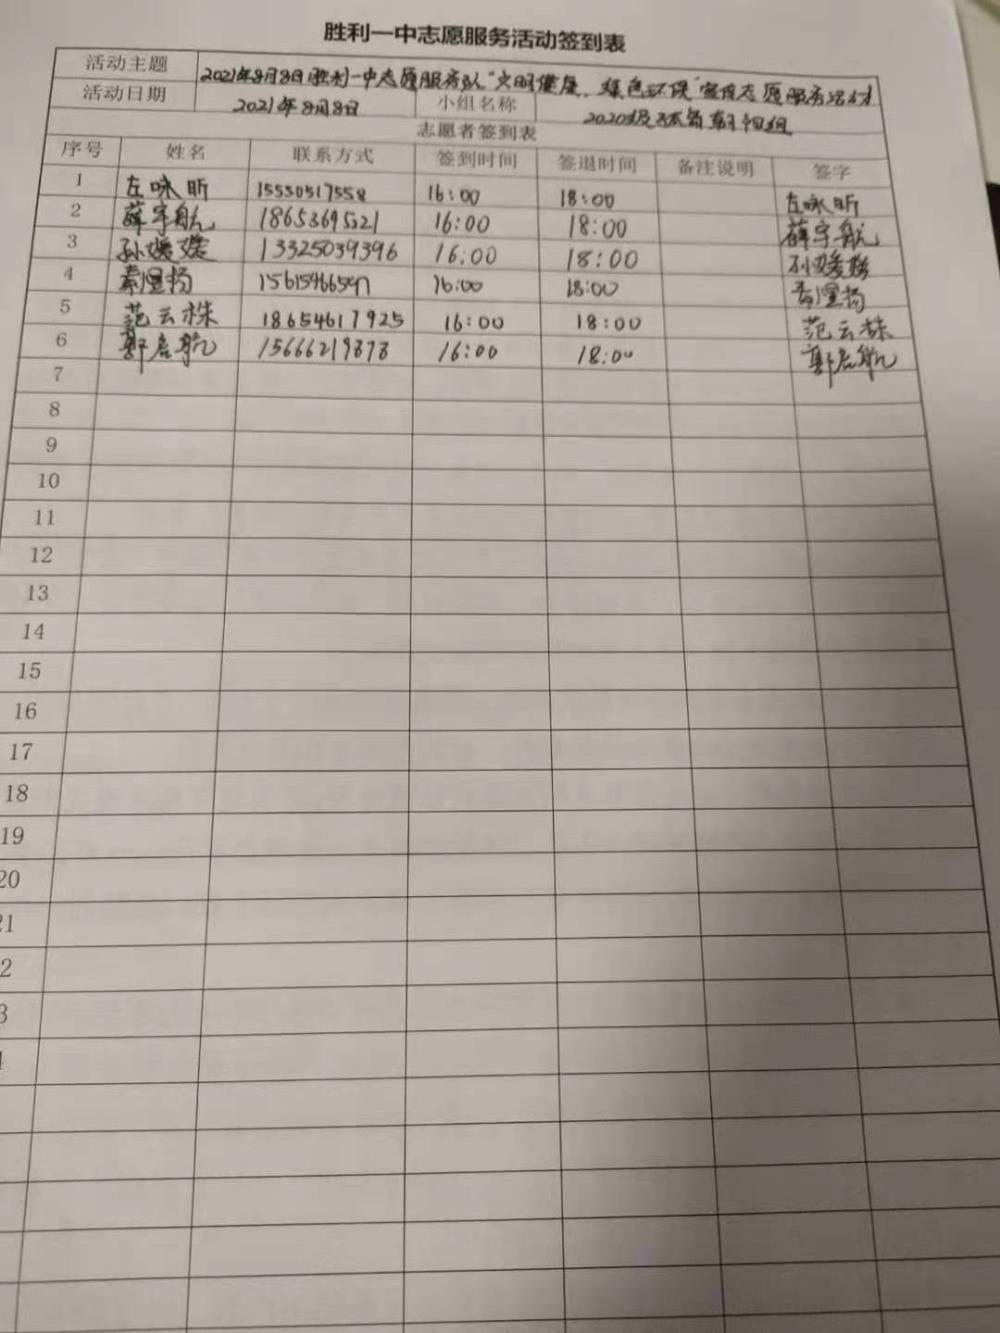 胜利一中志愿服务活动签到表
活动主题 2021年8月8日胜利一中志愿服务队"文明健康、绿色环保"宣传志愿服务活动
活动日期 2021年8月8日 小组名称 2020级
志愿者签到表
序号 姓名 联系方式 签到时间 签退时间 备注说明 签字
1 左咏昕 15550517558 16:00 18:00 左咏昕
2 薛宇航 18653695221 16:00 18:00 薛宇航
3 孙媛媛 13325039396 16:00 18:00 孙媛媛
4 16:00 18:00
5 范云株 18654617925 16:00 18:00 范云株
6 郭启航 15666219878 16:00 18:00 郭启航
7
8
9
10
11
12
13
14
15
16
17
18
19
20
21
2
3
4